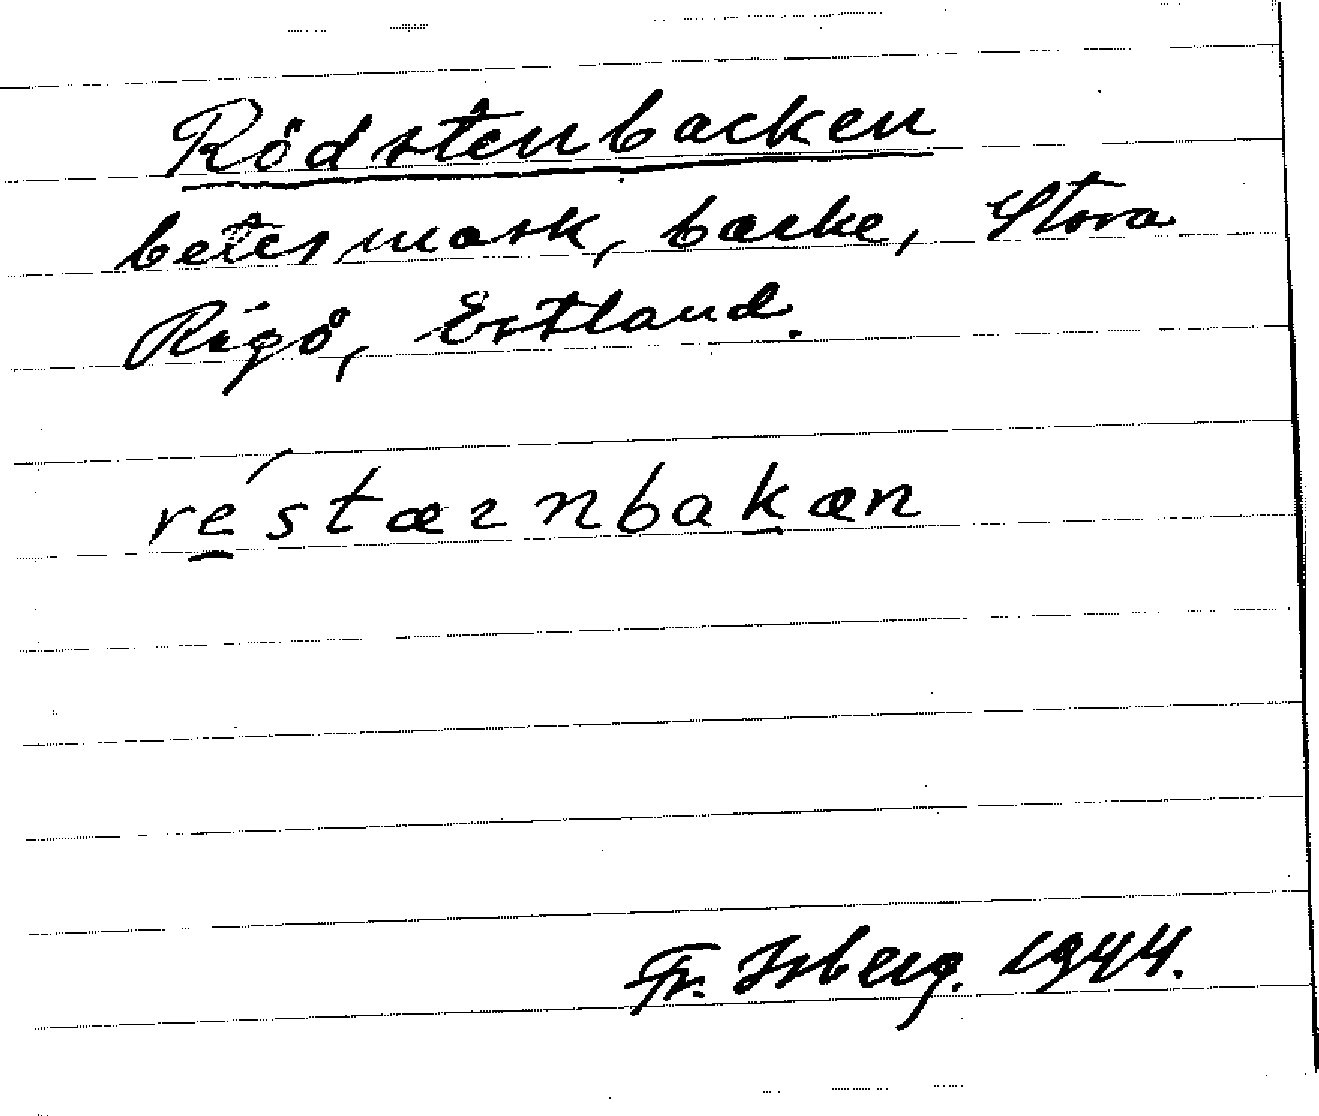 Rödstenbacken
betesmark, backe, Stora
Rågö, Estland.
réstæınbakæn
Fr. Isberg. 1944.